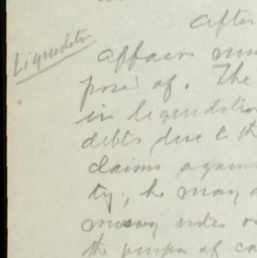 Liquidator
After
affairs mu
pose of. The
in liquidation
debts due to th
claims agains
ty; he may
money
the purpose of co